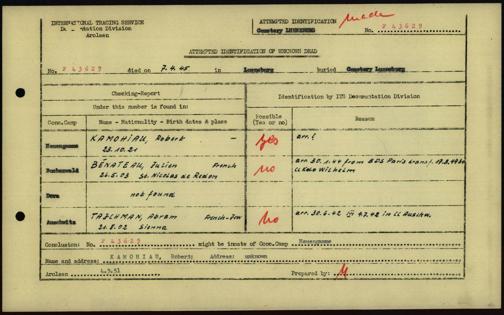 INTERNATIONAL TRACING SERVICE
Documentation Division
Arolsen
ATTEMPTED IDENTIFICATION made
Cemetery LUENEBURG
No. F 43629
ATTEMPTED IDENTIFICATION OF UNKNOWN DEAD
No. F 43629 died on 7.4.45 in Lueneburg buried Cemetery Lueneburg
Checking-Report
Under this number is found in:
Identification by ITS Documentation Division
Conc.Camp Name - Nationality - Birth dates & place Possible (Yes or no) Reason
Neuengamme KAMOHIAU, Robert - yes arr. ?
23.10.21
Buchenwald BÉNATEAU, Julien French no arr. 30.1.44 from BDS Paris transf.
26.5.03 St. Nicolas de Redon Kdo Wilhelm
Dora not found
Auschwitz TAJCHMAN, Abram French-Jew No arr. 30.6.42
21.8.02 Sienna
Conclusion: No. F 43629 might be inmate of Conc.Camp Neuengamme
Name and address: KAMOHIAU, Robert; Address: unknown
Arolsen 4.9.51 Prepared by: